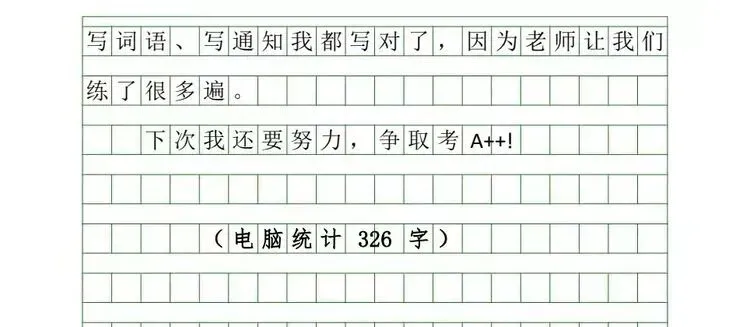 写词语、写通知我都写对了，因为老师让我们
练了很多遍。
下次我还要努力，争取考 A++!
（电脑统计 326 字）